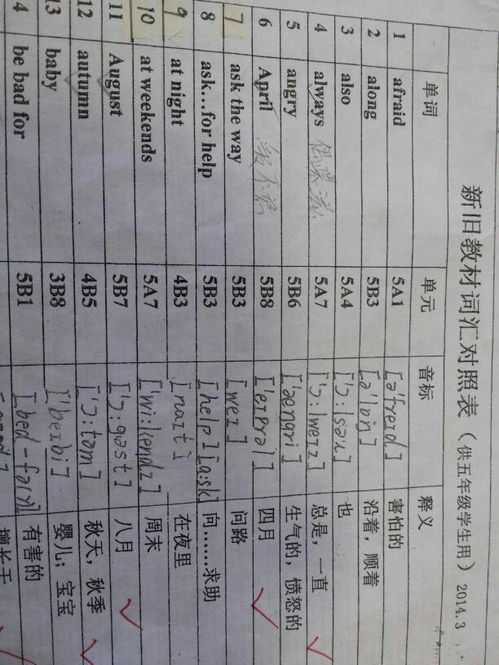 新旧教材词汇对照表（供五年级学生用）2014.3
单词 单元 音标 释义
1 afraid 5A1 [ə'freɪd] 害怕的
2 along 5B3 [ə'lɒŋ] 沿着，顺着
3 also 5A4 ['ɔ:lsəu] 也
4 always 5A7 ['ɔ:lweɪz] 总是，一直
5 angry 5B6 ['æŋgri] 生气的，愤怒的
6 April 5B8 ['eɪprəl] 四月
7 ask the way 5B3 [weɪ] 问路
8 ask…for help 5B3 [help] [a:sk] 向……求助
9 at night 4B3 [naɪt] 在夜里
10 at weekends 5A7 [wi:kendz] 周末
11 August 5B7 ['ɔ:gəst] 八月
12 autumn 4B5 ['ɔ:təm] 秋天，秋季
13 baby 3B8 ['beɪbi] 婴儿；宝宝
14 be bad for 5B1 有害的